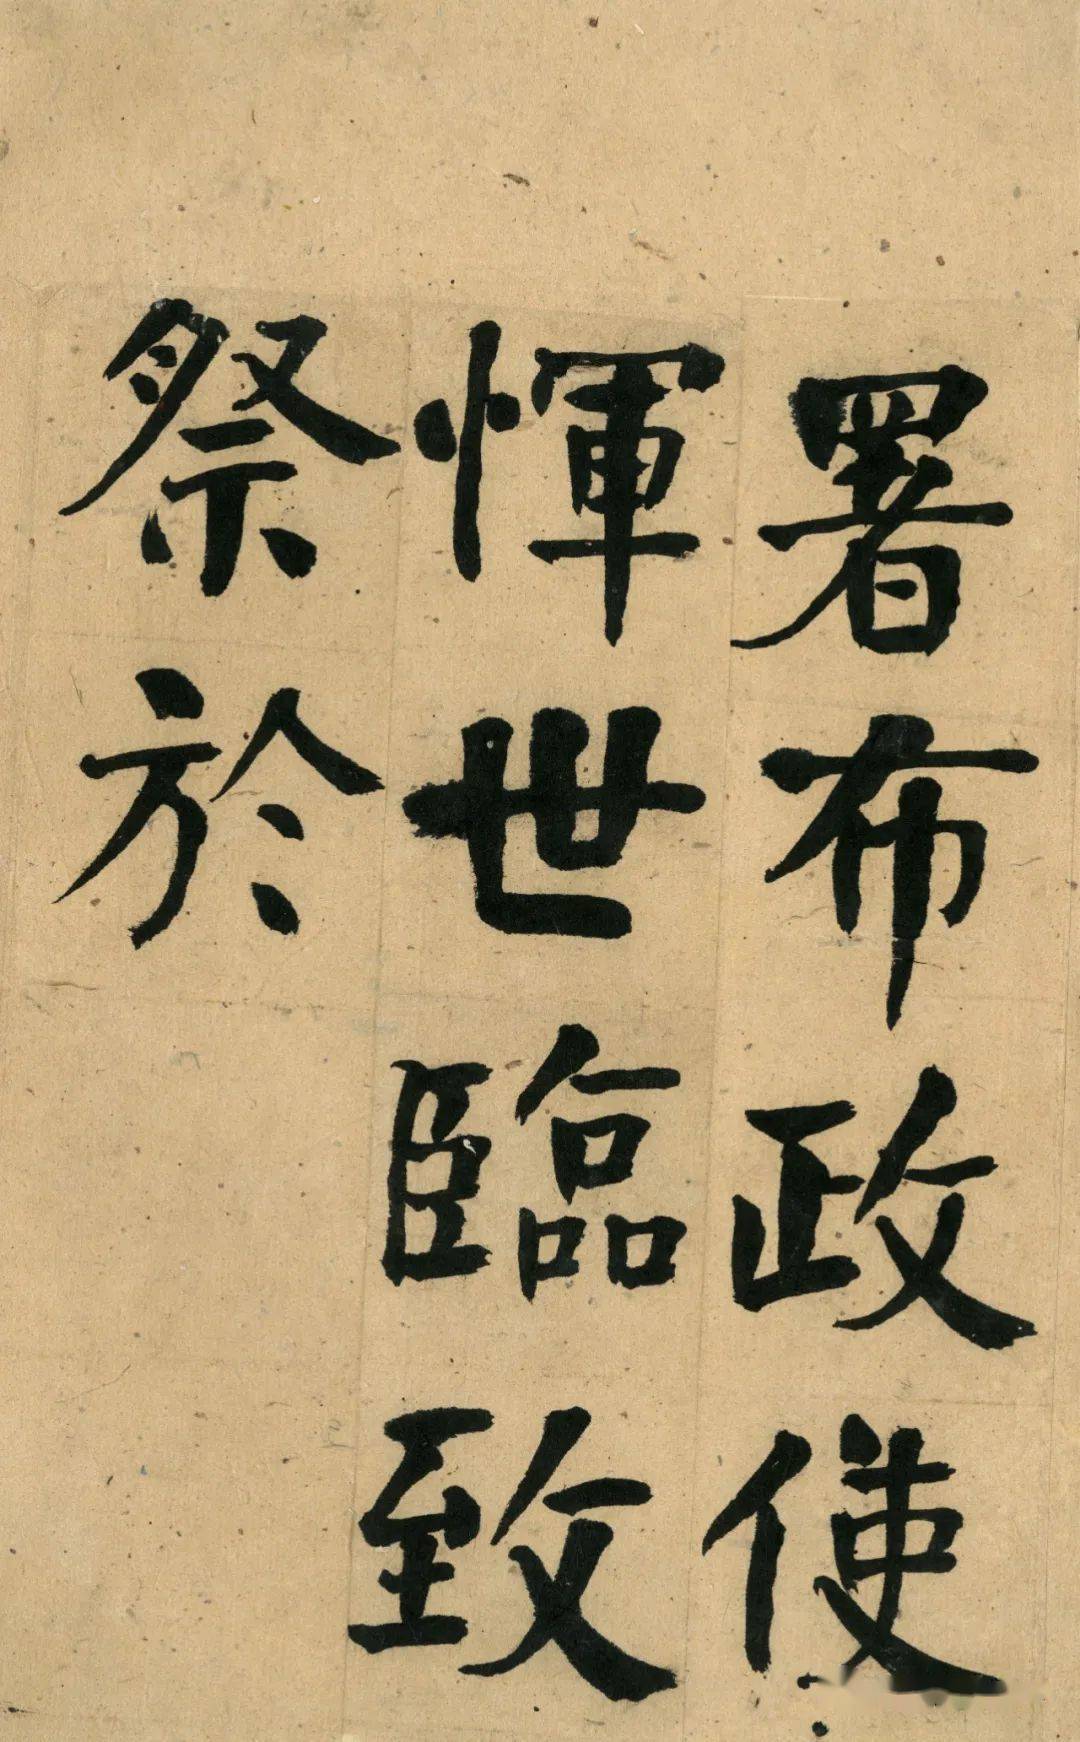 署布政使
惲世臨致
祭於